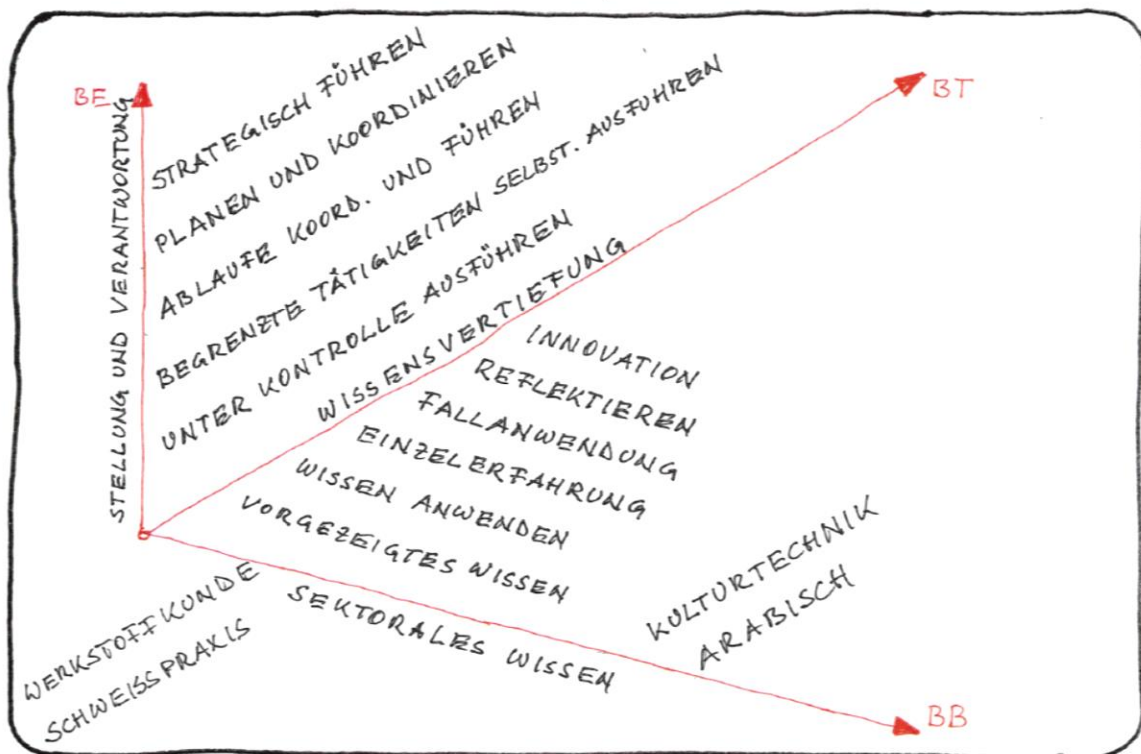 BE
STELLUNG UND VERANTWORTUNG
STRATEGISCH FÜHREN
PLANEN UND KOORDINIEREN
ABLAUFE KOORD. UND FÜHREN
BEGRENZTE TÄTIGKEITEN SELBST. AUSFUHREN
UNTER KONTROLLE AUSFÜHREN
WISSENSVERTIEFUNG
BT
INNOVATION
REFLEKTIEREN
FALLANWENDUNG
EINZELERFAHRUNG
WISSEN ANWENDEN
VORGEZEIGTES WISSEN
SEKTORALES WISSEN
WERKSTOFFKUNDE
SCHWEISSPRAXIS
KULTURTECHNIK
ARABISCH
BB